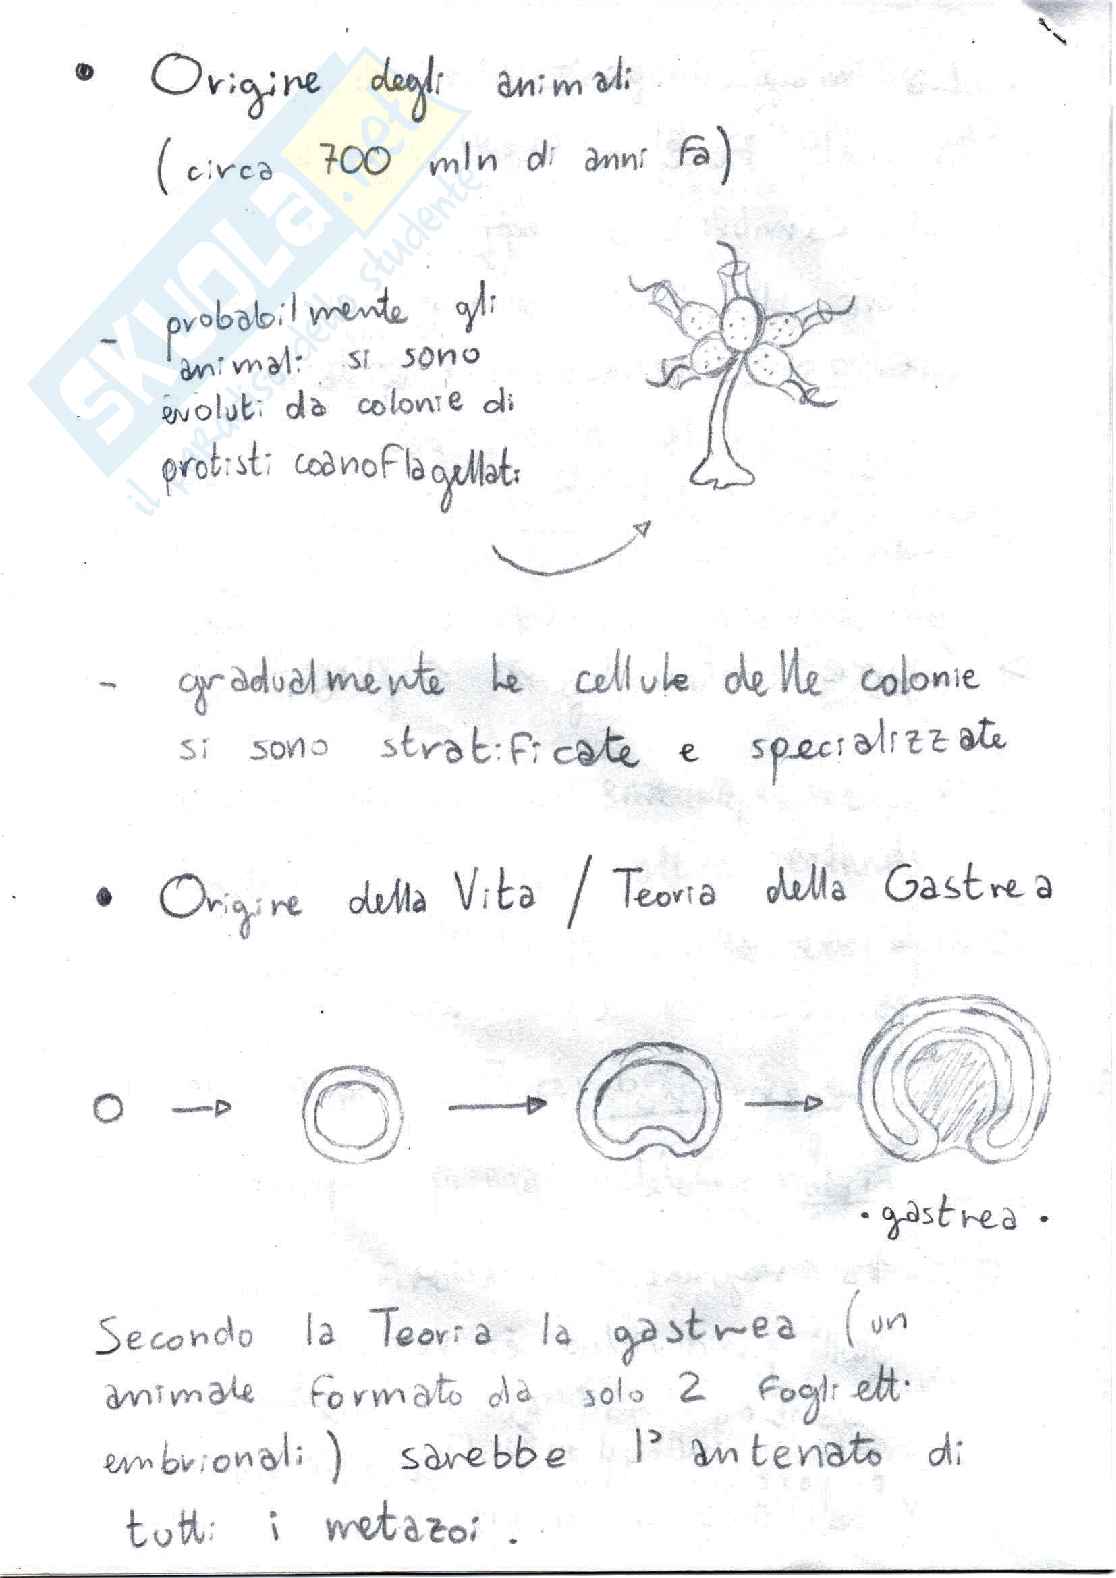 • Origine degli animali
(circa 700 mln di anni fa)
- probabilmente gli
animali si sono
evoluti da colonie di
protisti coanoflagellati
- gradualmente le cellule delle colonie
si sono stratificate e specializzate
• Origine della Vita / Teoria della Gastrea
• gastrea •
Secondo la Teoria la gastrea (un
animale formato da solo 2 foglietti
embrionali) sarebbe l'antenato di
tutti i metazoi.
SKUOLA.net
il paradiso dello studente